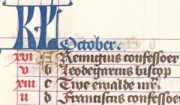 KL
October.
xvi A Remigius confessoer
v b Leodegarius biscop
xiii c Twe ewalde mr.
ii d Franciscus confessoer